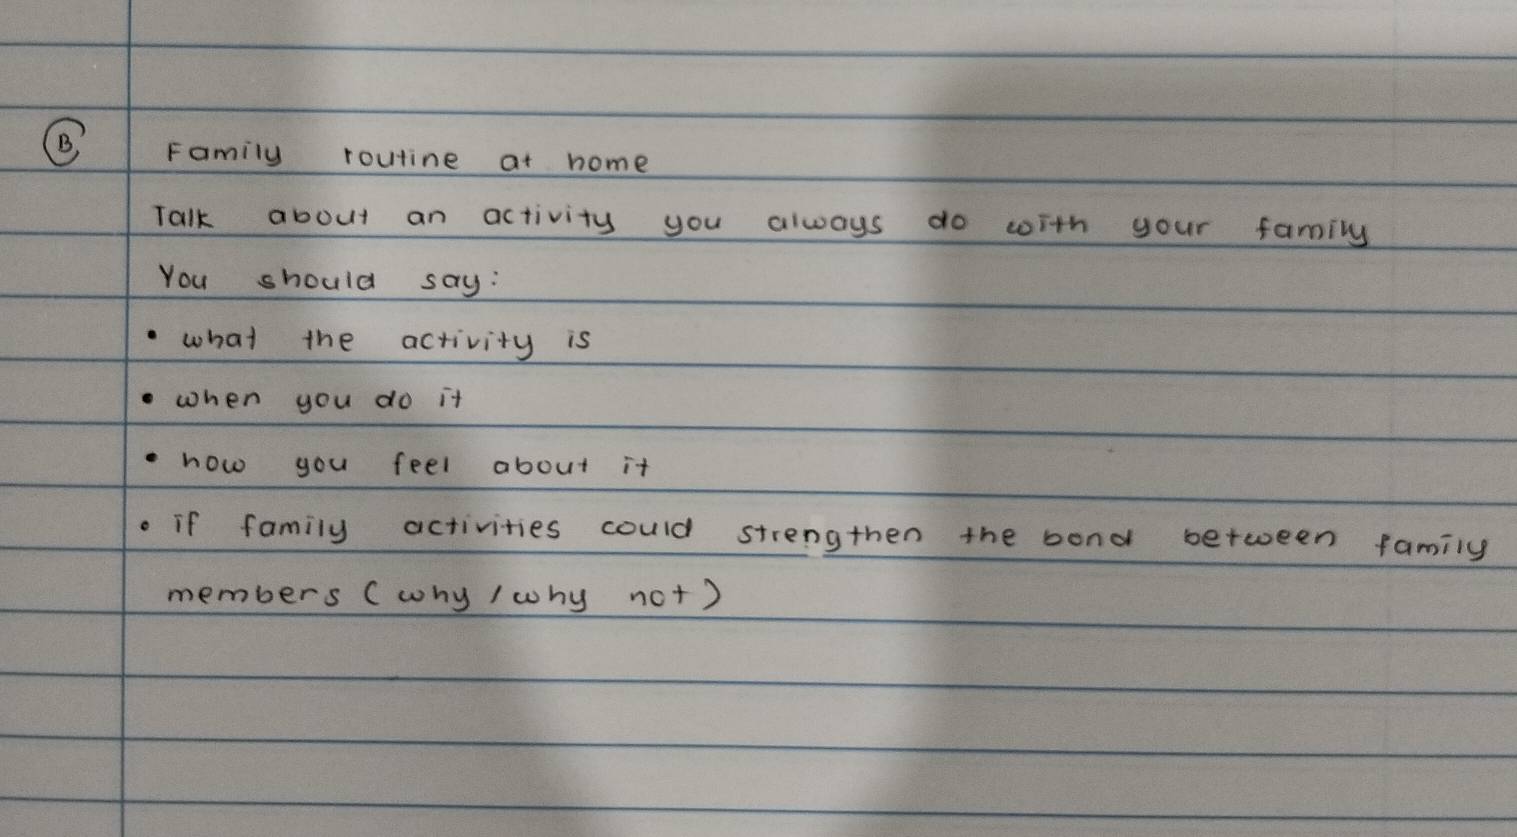 B Family routine at home
Talk about an activity you always do with your family
You should say:
• what the activity is
• when you do it
• how you feel about it
• if family activities could strengthen the bond between family
members (why / why not)